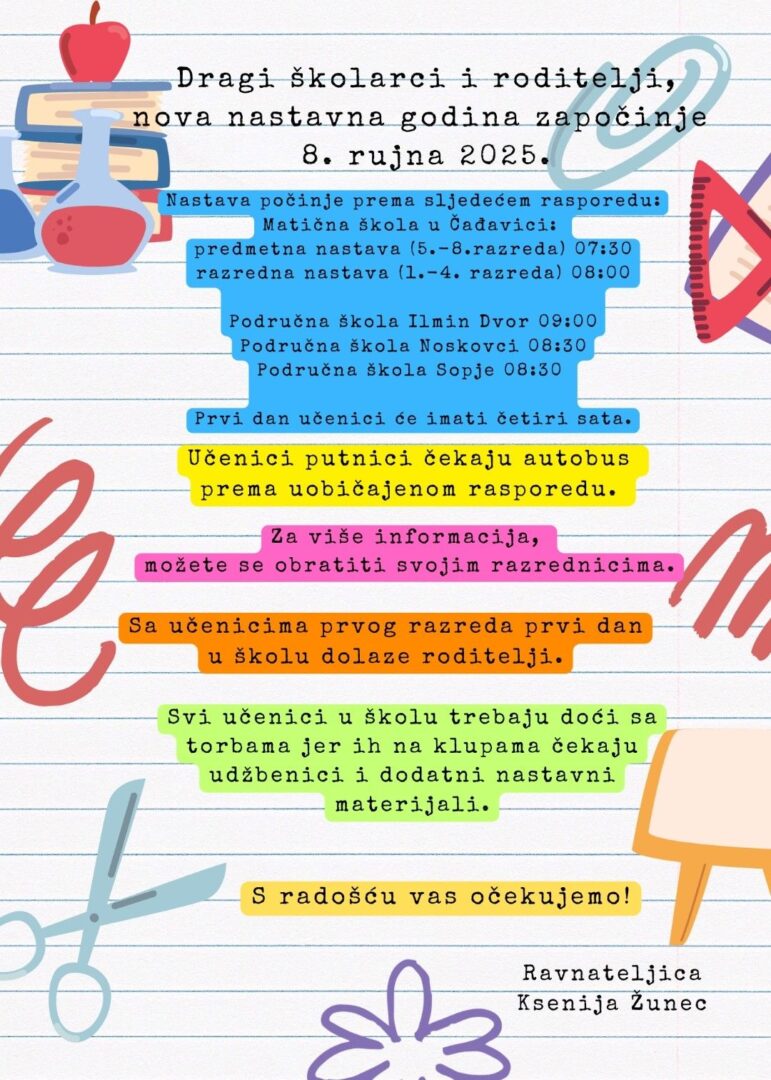 Dragi školarci i roditelji,
nova nastavna godina započinje
8. rujna 2025.
Nastava počinje prema sljedećem rasporedu:
Matična škola u Čađavici:
predmetna nastava (5.-8.razreda) 07:30
razredna nastava (1.-4. razreda) 08:00
Područna škola Ilmin Dvor 09:00
Područna škola Noskovci 08:30
Područna škola Sopje 08:30
Prvi dan učenici će imati četiri sata.
Učenici putnici čekaju autobus
prema uobičajenom rasporedu.
Za više informacija,
možete se obratiti svojim razrednicima.
Sa učenicima prvog razreda prvi dan
u školu dolaze roditelji.
Svi učenici u školu trebaju doći sa
torbama jer ih na klupama čekaju
udžbenici i dodatni nastavni
materijali.
S radošću vas očekujemo!
Ravnateljica
Ksenija Žunec